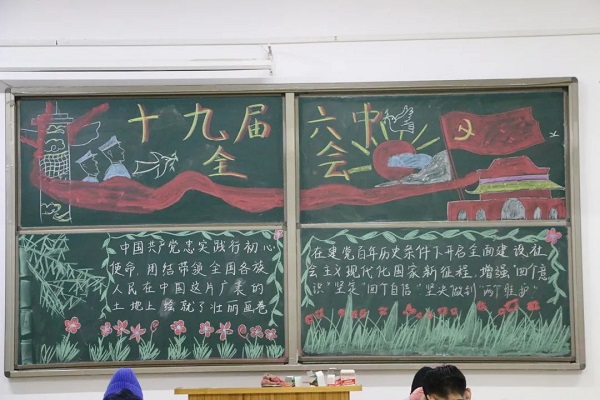 十九届六中
全会
中国共产党忠实践行初心
使命，团结带领全国各族
人民在中国这片广袤的
土地上绘就了壮丽画卷
在建党百年历史条件下开启全面建设社
会主义现代化国家新征程，增强"四个意
识"坚定"四个自信"坚决做到"两个维护"